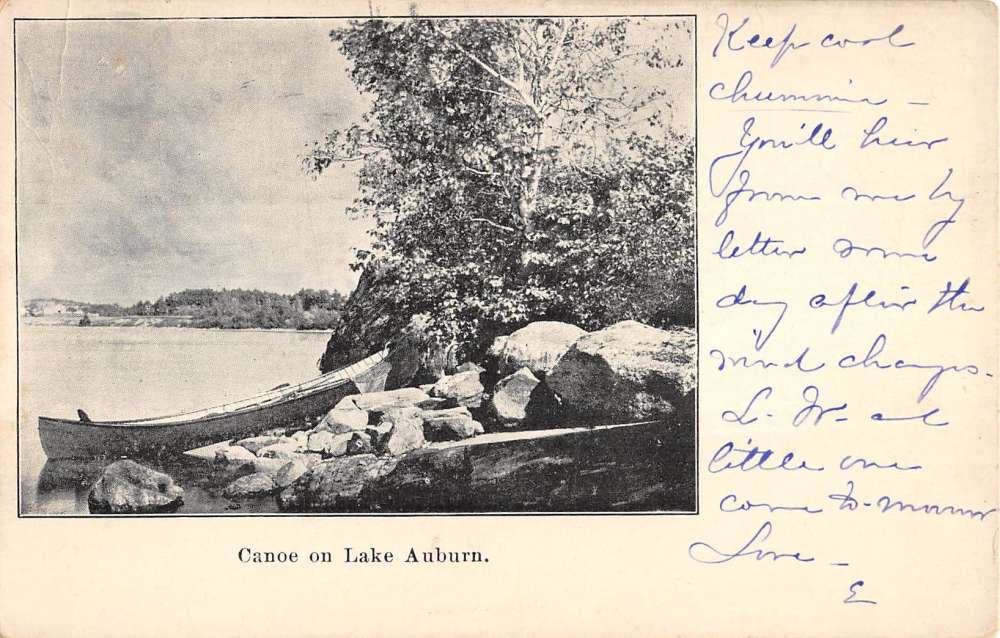 Canoe on Lake Auburn.
Keep cool
chummie -
You'll hear
from me by
letter some
day after the
wind changes.
L. W. and
little one
come to-morrow
Love -
E